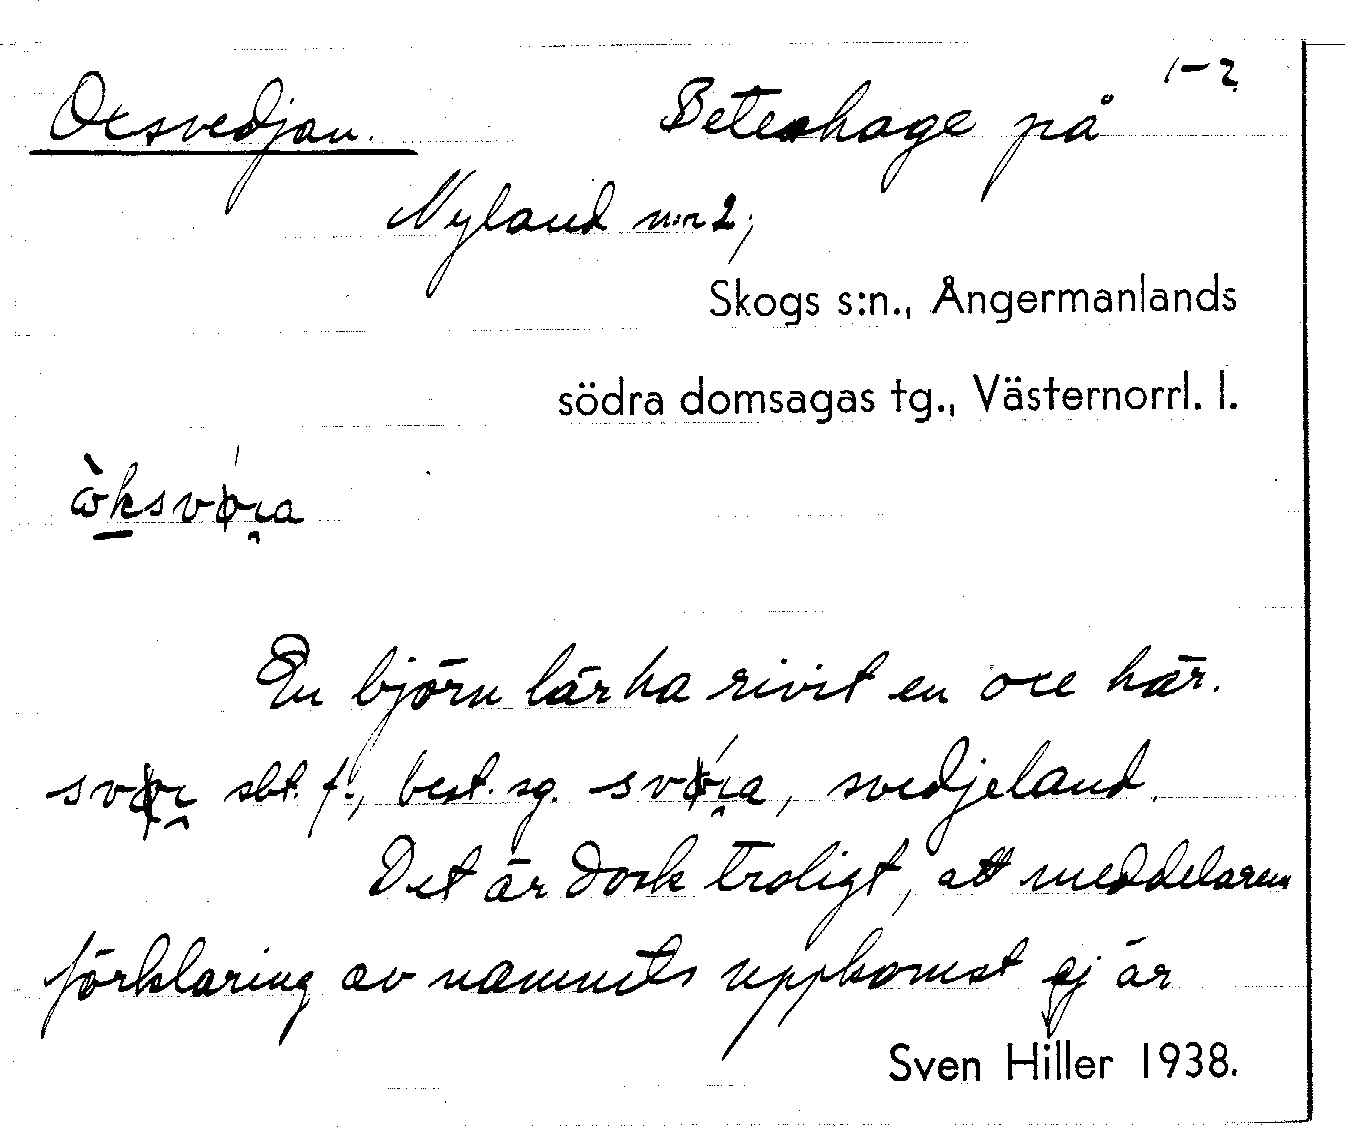 1–2
Ocsvedjan. Beteshage på
Nyland n:r 2;
Skogs s:n., Ångermanlands
södra domsagas tg., Västernorrl. l.
En björn lär ha rivit en oce här.
sbt. f., best. sg. svedjeland.
Det är dock troligt, att meddelarens
förklaring av namnets uppkomst ej är
Sven Hiller 1938.